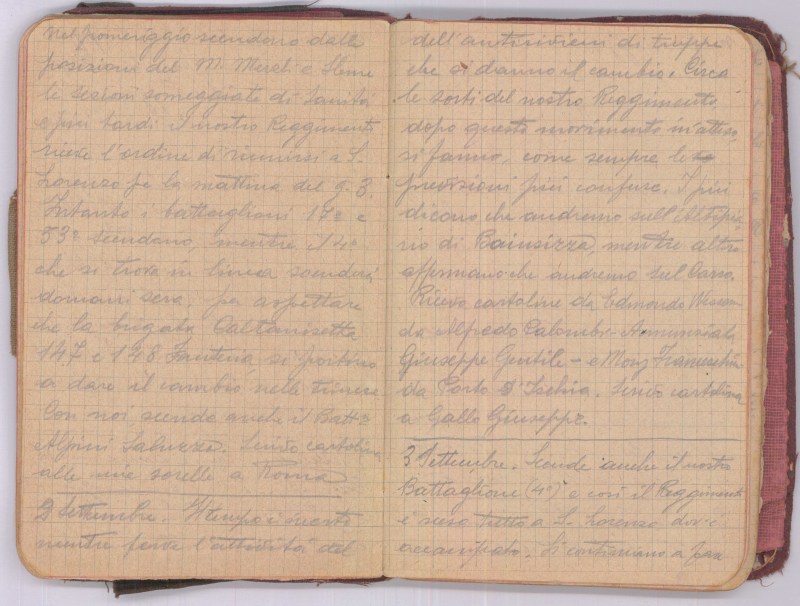 Nel pomeriggio scendono dalle
posizioni del M. Merzli e Sleme
le sezioni someggiate di Sanità
e più tardi il nostro Reggimento
riceve l'ordine di riunirsi a S.
Lorenzo pe la mattina del g. 3.
Intanto i battaglioni 17º e
53º scendono, mentre il 4º
che si trova in linea scenderà
domani sera, per aspettare
che la brigata Caltanisetta
147 e 148 Fanteria si portino
a dare il cambio nelle trincee
Con noi scende anche il Batt.
Alpini Saluzzo. Scrivo cartolina
alle mie sorelle a Roma
2 Settembre. Il tempo è incerto
mentre ferve l'attività del
dell'antirivieni di truppe
che si danno il cambio. Circa
le sorti del nostro Reggimento,
dopo questo movimento inatteso,
si fanno, come sempre le
previsioni più confuse. I più
dicono che andremo sull'Altopia
no di Bainsizza, mentre altri
affermano che andremo sul Carso.
Ricevo cartoline da Edmondo
da Alfredo Colombo - Annunziata
Giuseppe Gentile - e Mons. Franceschini
da Porto d'Ischia. Scrivo cartolina
a Gallo Giuseppe.
3 Settembre. Scende anche il nostro
Battaglione (4º) e così il Reggimento
è sceso tutto a S. Lorenzo dov'è
accampato. Si continuano a fare